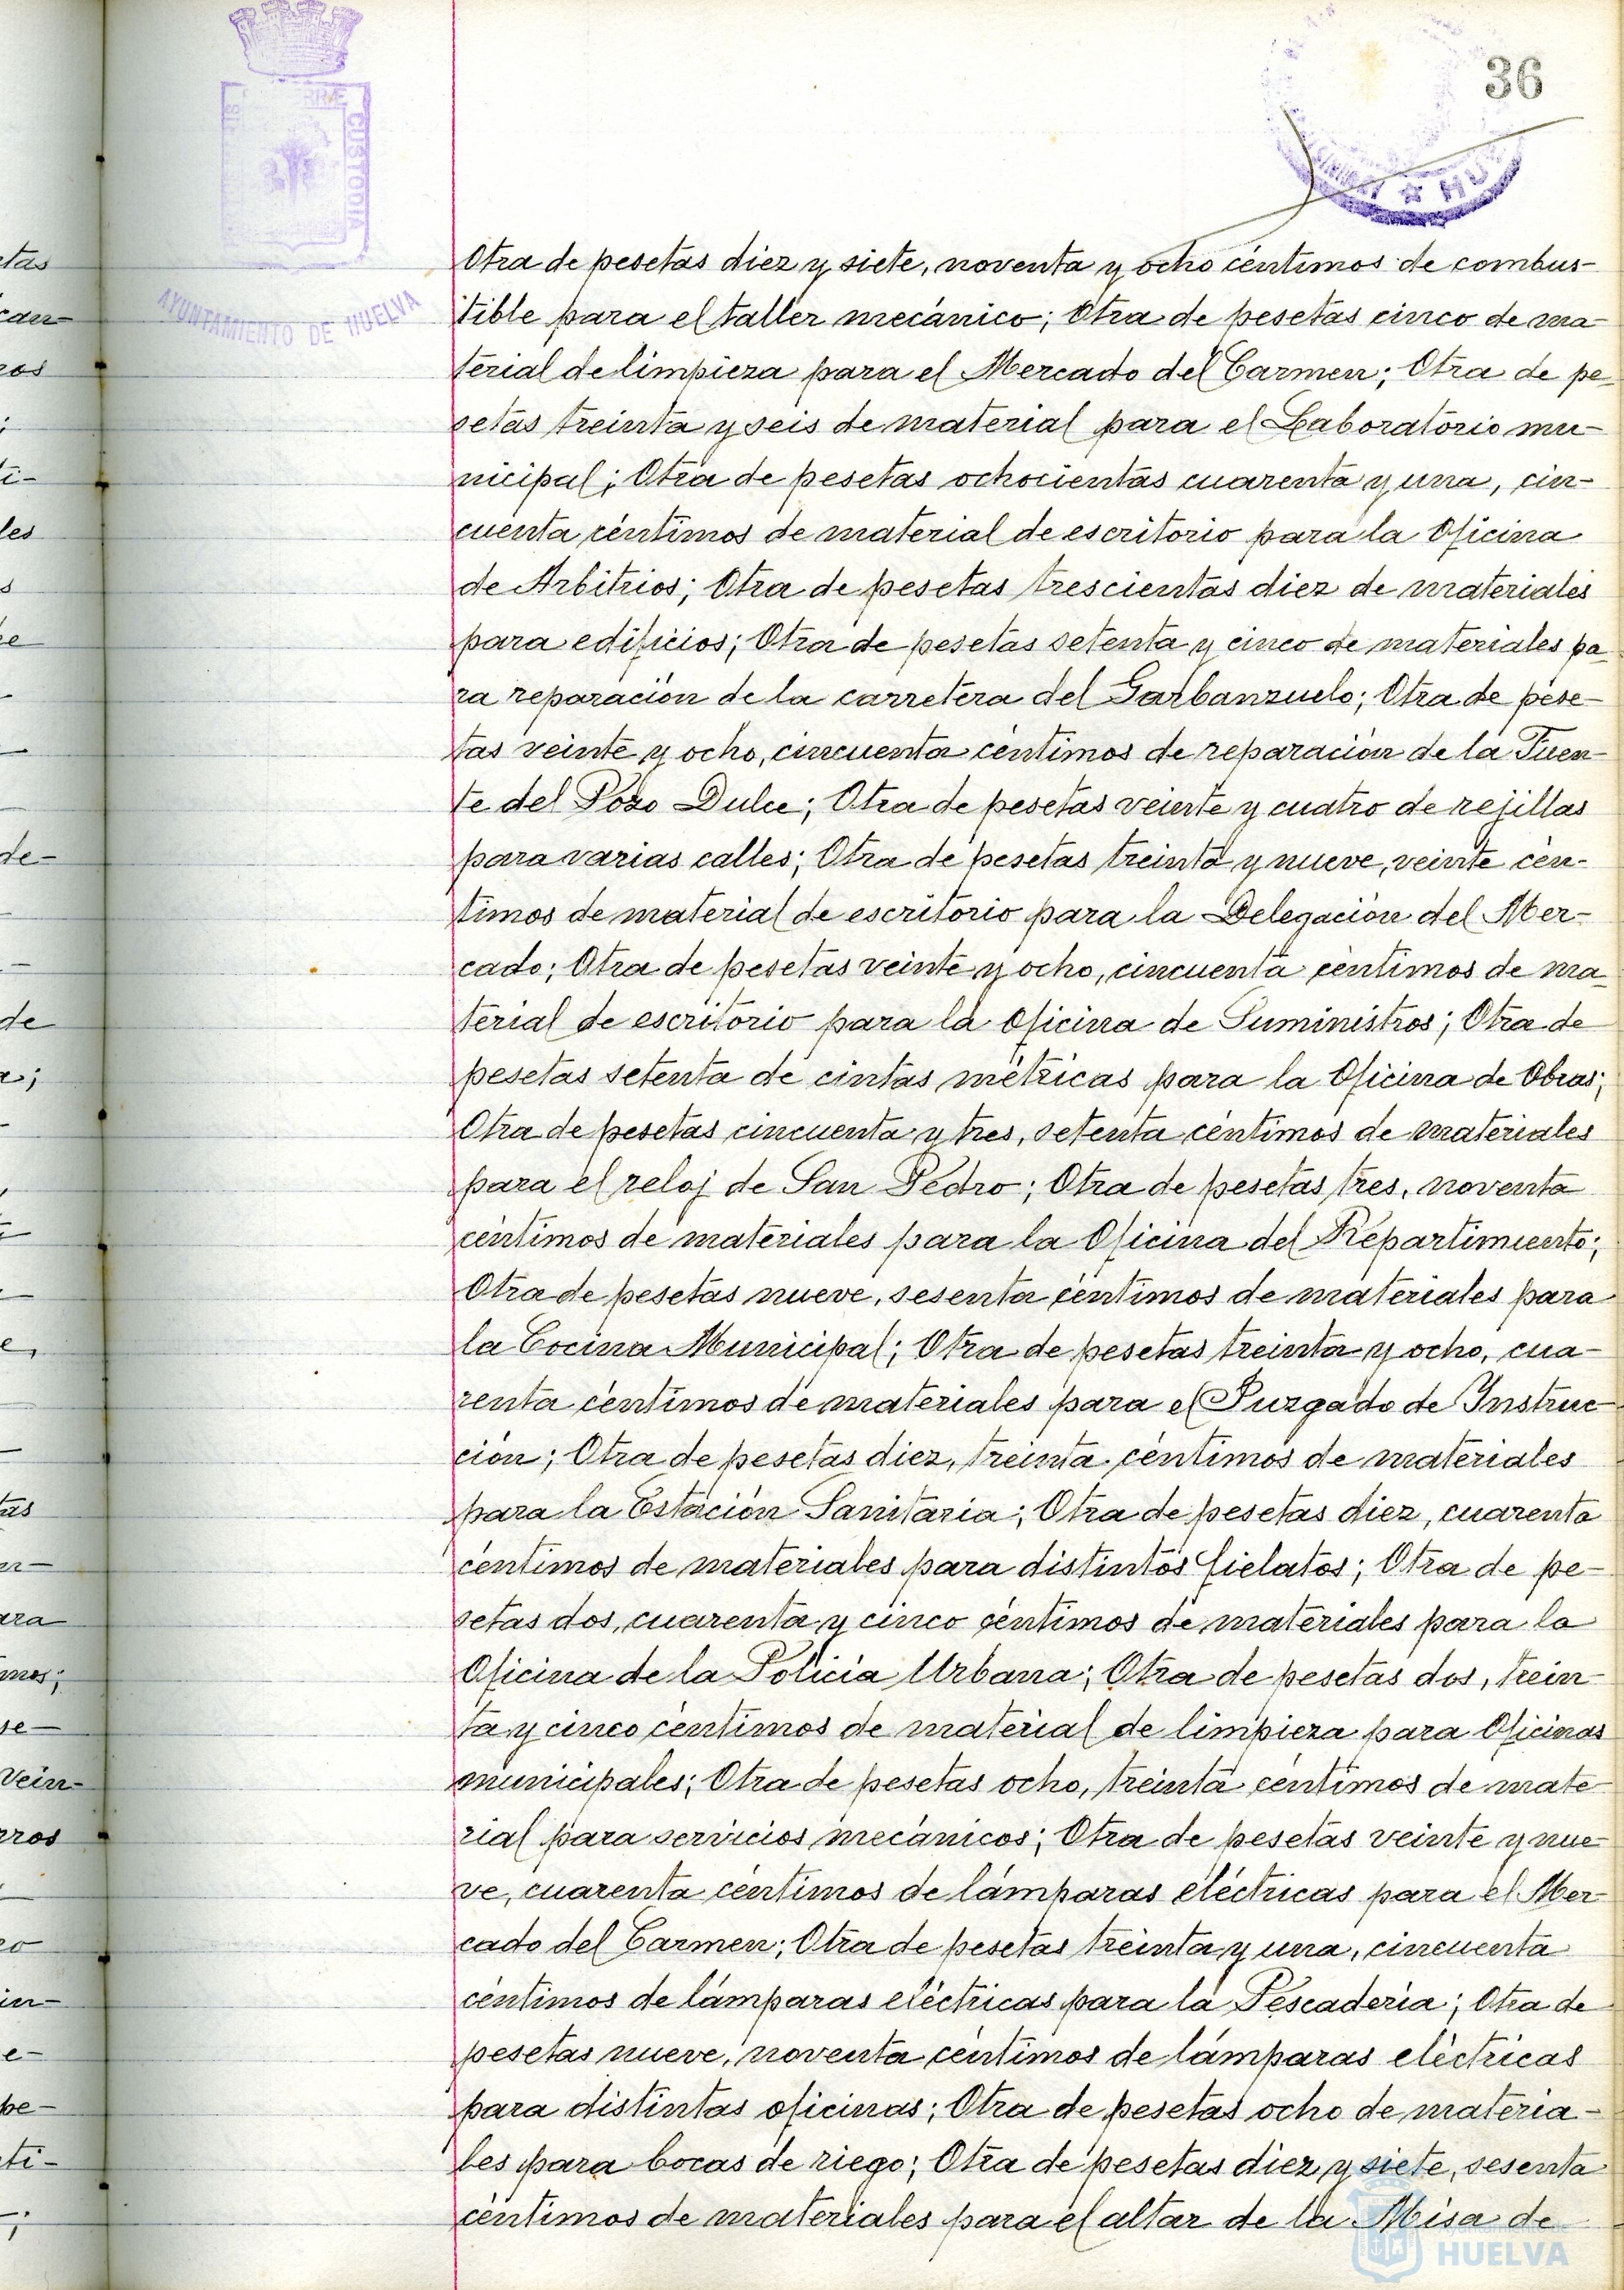 36
CUSTODIA
AYUNTAMIENTO DE HUELVA
Otra de pesetas diez y siete, noventa y ocho céntimos de combus-
tible para el taller mecánico; Otra de pesetas cinco de ma-
terial de limpieza para el Mercado del Carmen; Otra de pe-
setas treinta y seis de material para el Laboratorio mu-
nicipal; Otra de pesetas ochocientas cuarenta y una, cin-
cuenta céntimos de material de escritorio para la Oficina
de Arbitrios; Otra de pesetas trescientas diez de materiales
para edificios; Otra de pesetas setenta y cinco de materiales pa-
ra reparación de la carretera del Garbanzuelo; Otra de pese-
tas veinte y ocho, cincuenta céntimos de reparación de la Fuen-
te del Pozo Dulce; Otra de pesetas veinte y cuatro de rejillas
para varias calles; Otra de pesetas treinta y nueve, veinte cén-
timos de material de escritorio para la Delegación del Mer-
cado; Otra de pesetas veinte y ocho, cincuenta céntimos de ma-
terial de escritorio para la Oficina de Suministros; Otra de
pesetas setenta de cintas métricas para la Oficina de Obras;
Otra de pesetas cincuenta y tres, setenta céntimos de materiales
para el reloj de San Pedro; Otra de pesetas tres, noventa
céntimos de materiales para la Oficina del Repartimiento;
Otra de pesetas nueve, sesenta céntimos de materiales para
la Cocina Municipal; Otra de pesetas treinta y ocho, cua-
renta céntimos de materiales para el Juzgado de Instruc-
ción; Otra de pesetas diez, treinta céntimos de materiales
para la Estación Sanitaria; Otra de pesetas diez, cuarenta
céntimos de materiales para distintos fielatos; Otra de pe-
setas dos, cuarenta y cinco céntimos de materiales para la
Oficina de la Policía Urbana; Otra de pesetas dos, trein-
ta y cinco céntimos de material de limpieza para Oficinas
municipales; Otra de pesetas ocho, treinta céntimos de mate-
rial para servicios mecánicos; Otra de pesetas veinte y nue-
ve, cuarenta céntimos de lámparas eléctricas para el Mer-
cado del Carmen; Otra de pesetas treinta y una, cincuenta
céntimos de lámparas eléctricas para la Pescadería; Otra de
pesetas nueve, noventa céntimos de lámparas eléctricas
para distintas oficinas; Otra de pesetas ocho de materia-
les para bocas de riego; Otra de pesetas diez y siete, sesenta
céntimos de materiales para el altar de la Misa de
HUELVA